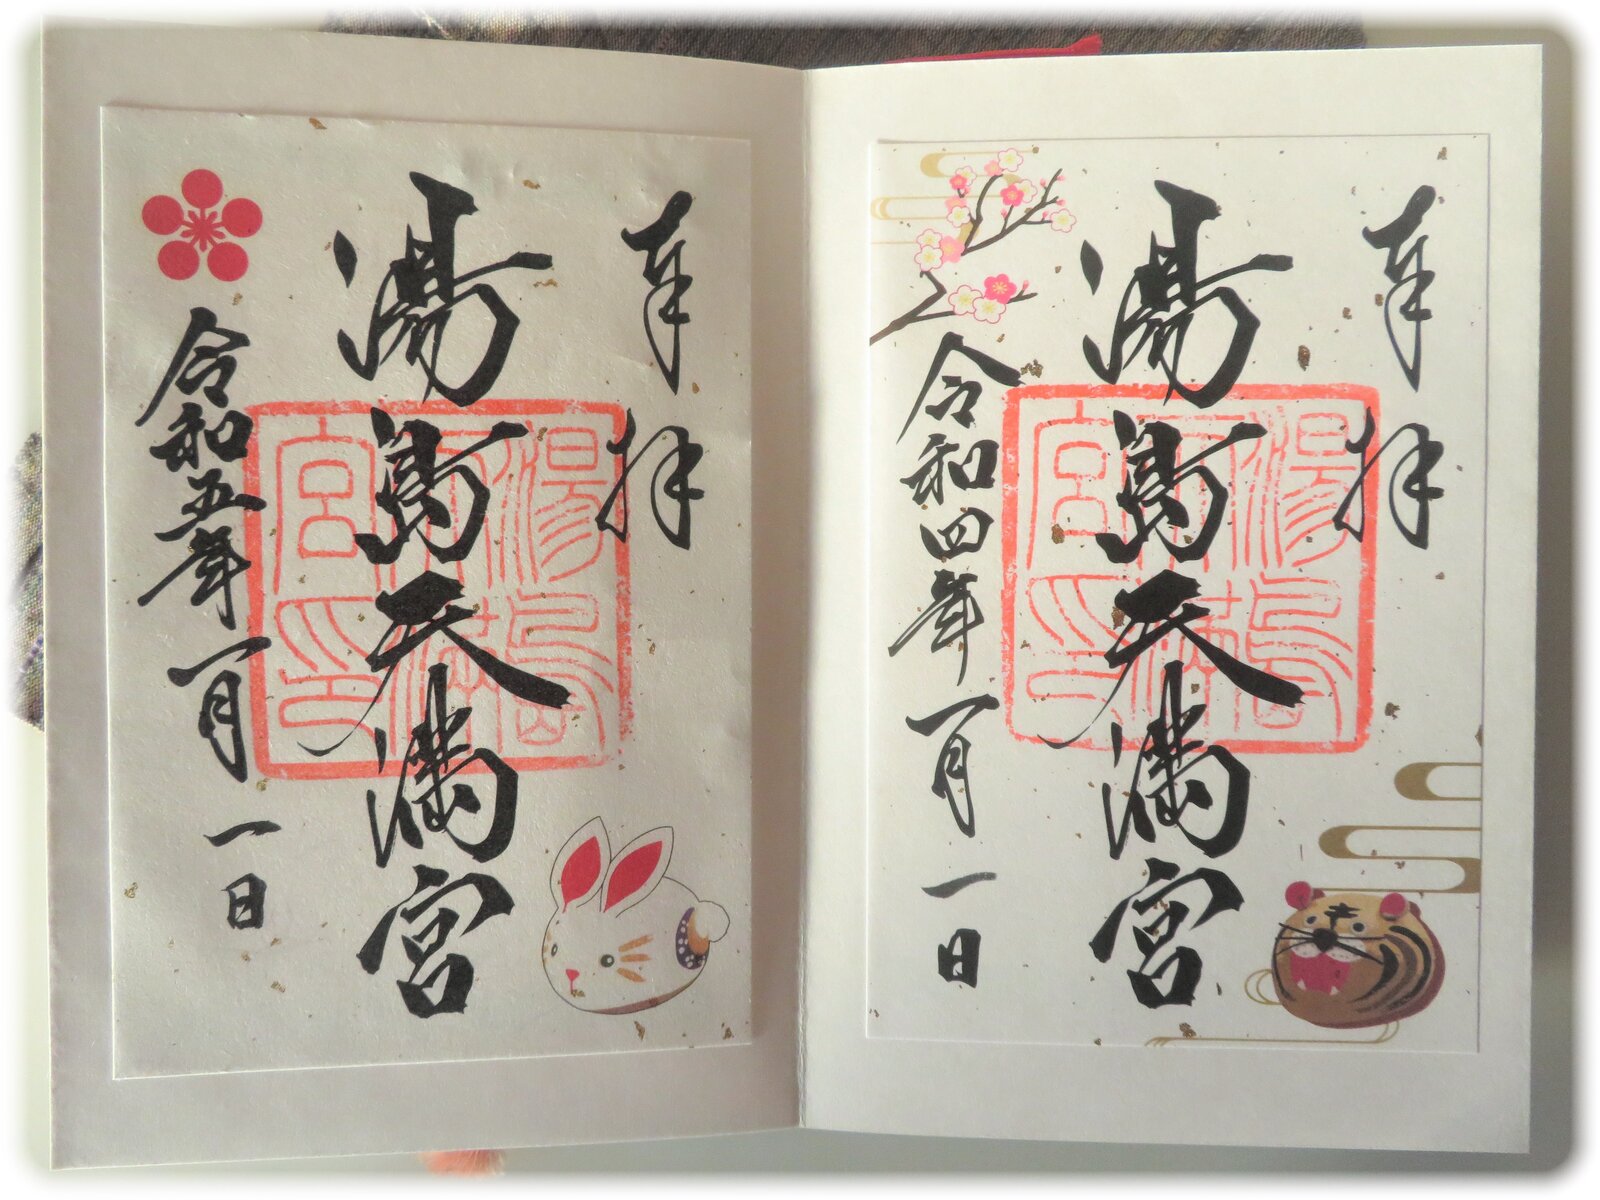 奉拝
湯島天満宮
令和四年一月一日
奉拝
湯島天満宮
令和五年一月一日